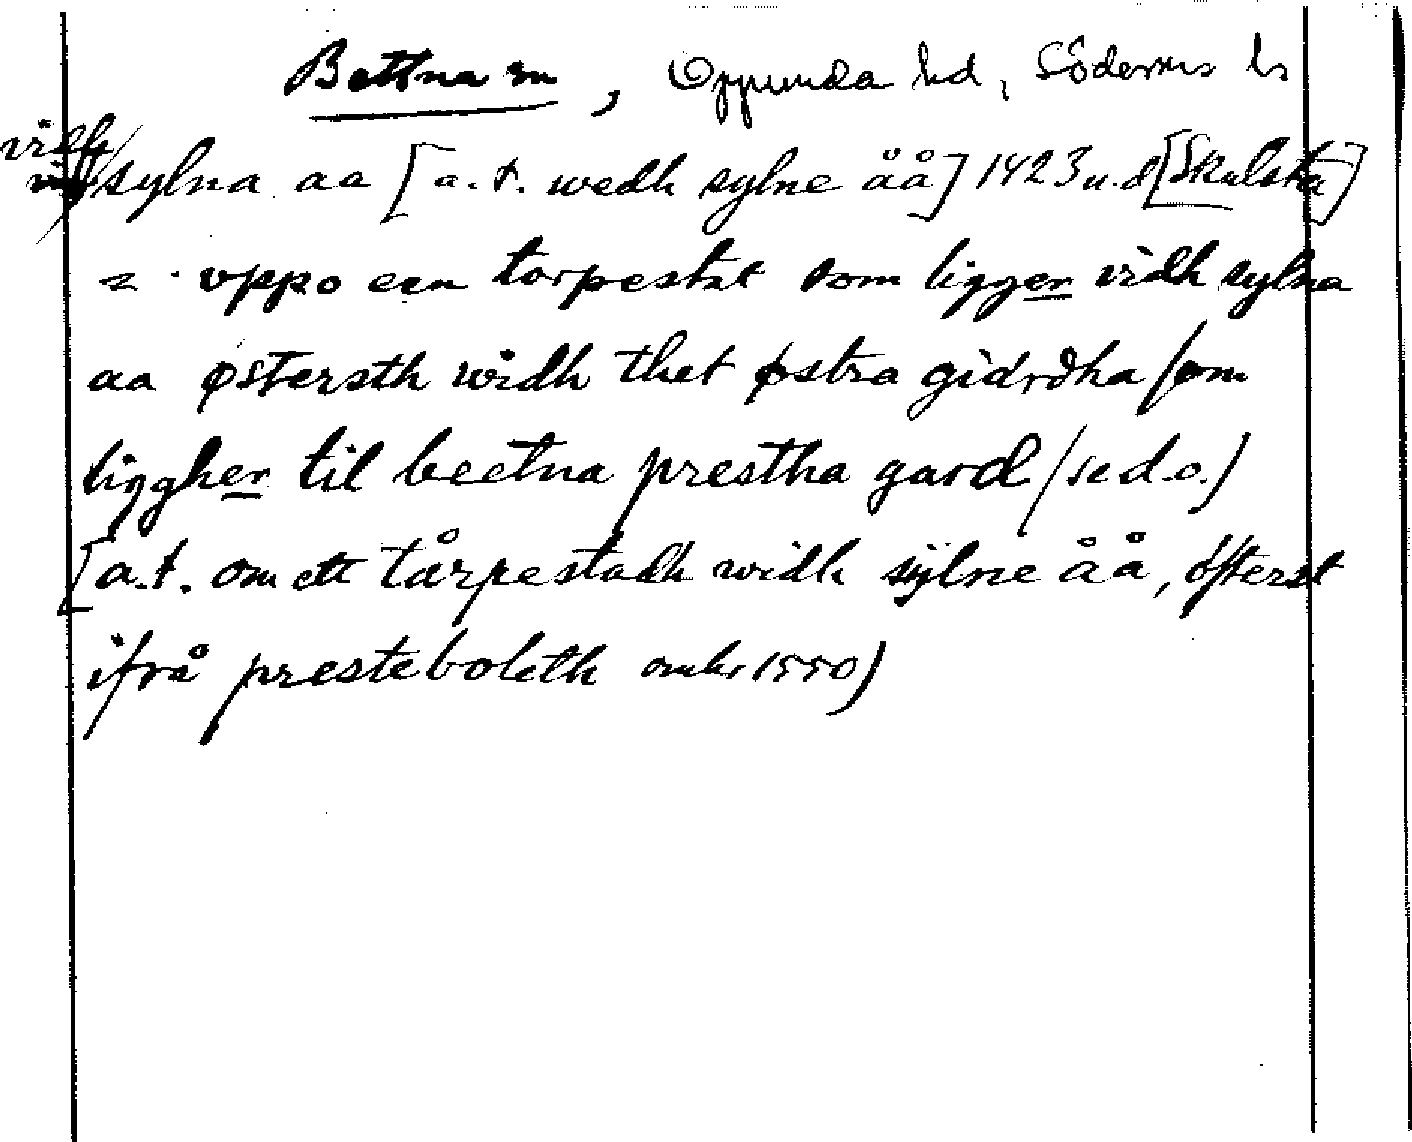 Bettna sn, Oppunda hd, Söderm ls
vidh sylna aa [a.t. wedh sylne åå] 1423 u.d [Skulsta]
= vppo een torpestat som ligger vidh sylna
aa østersth widh thet østra gidrdha /om
liggher til beetna prestha gard (se d.o.)
[a.t. om ett tårpestadh widh sylne åå, öfterst
ifrå presteboleth omkr 1550)